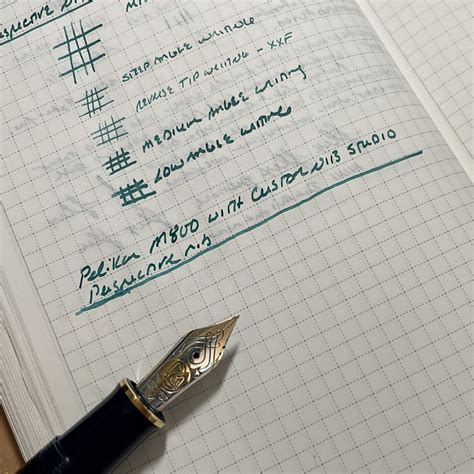 SPECTIVE NIB
STEEP ANGLE WRITING
REVERSE TIP WRITING - XXF
MEDIUM ANGLE WRITING
LOW ANGLE WRITING
Pelikan M800 WITH CUSTOM NIB STUDIO
PERSPECTIVE NIB